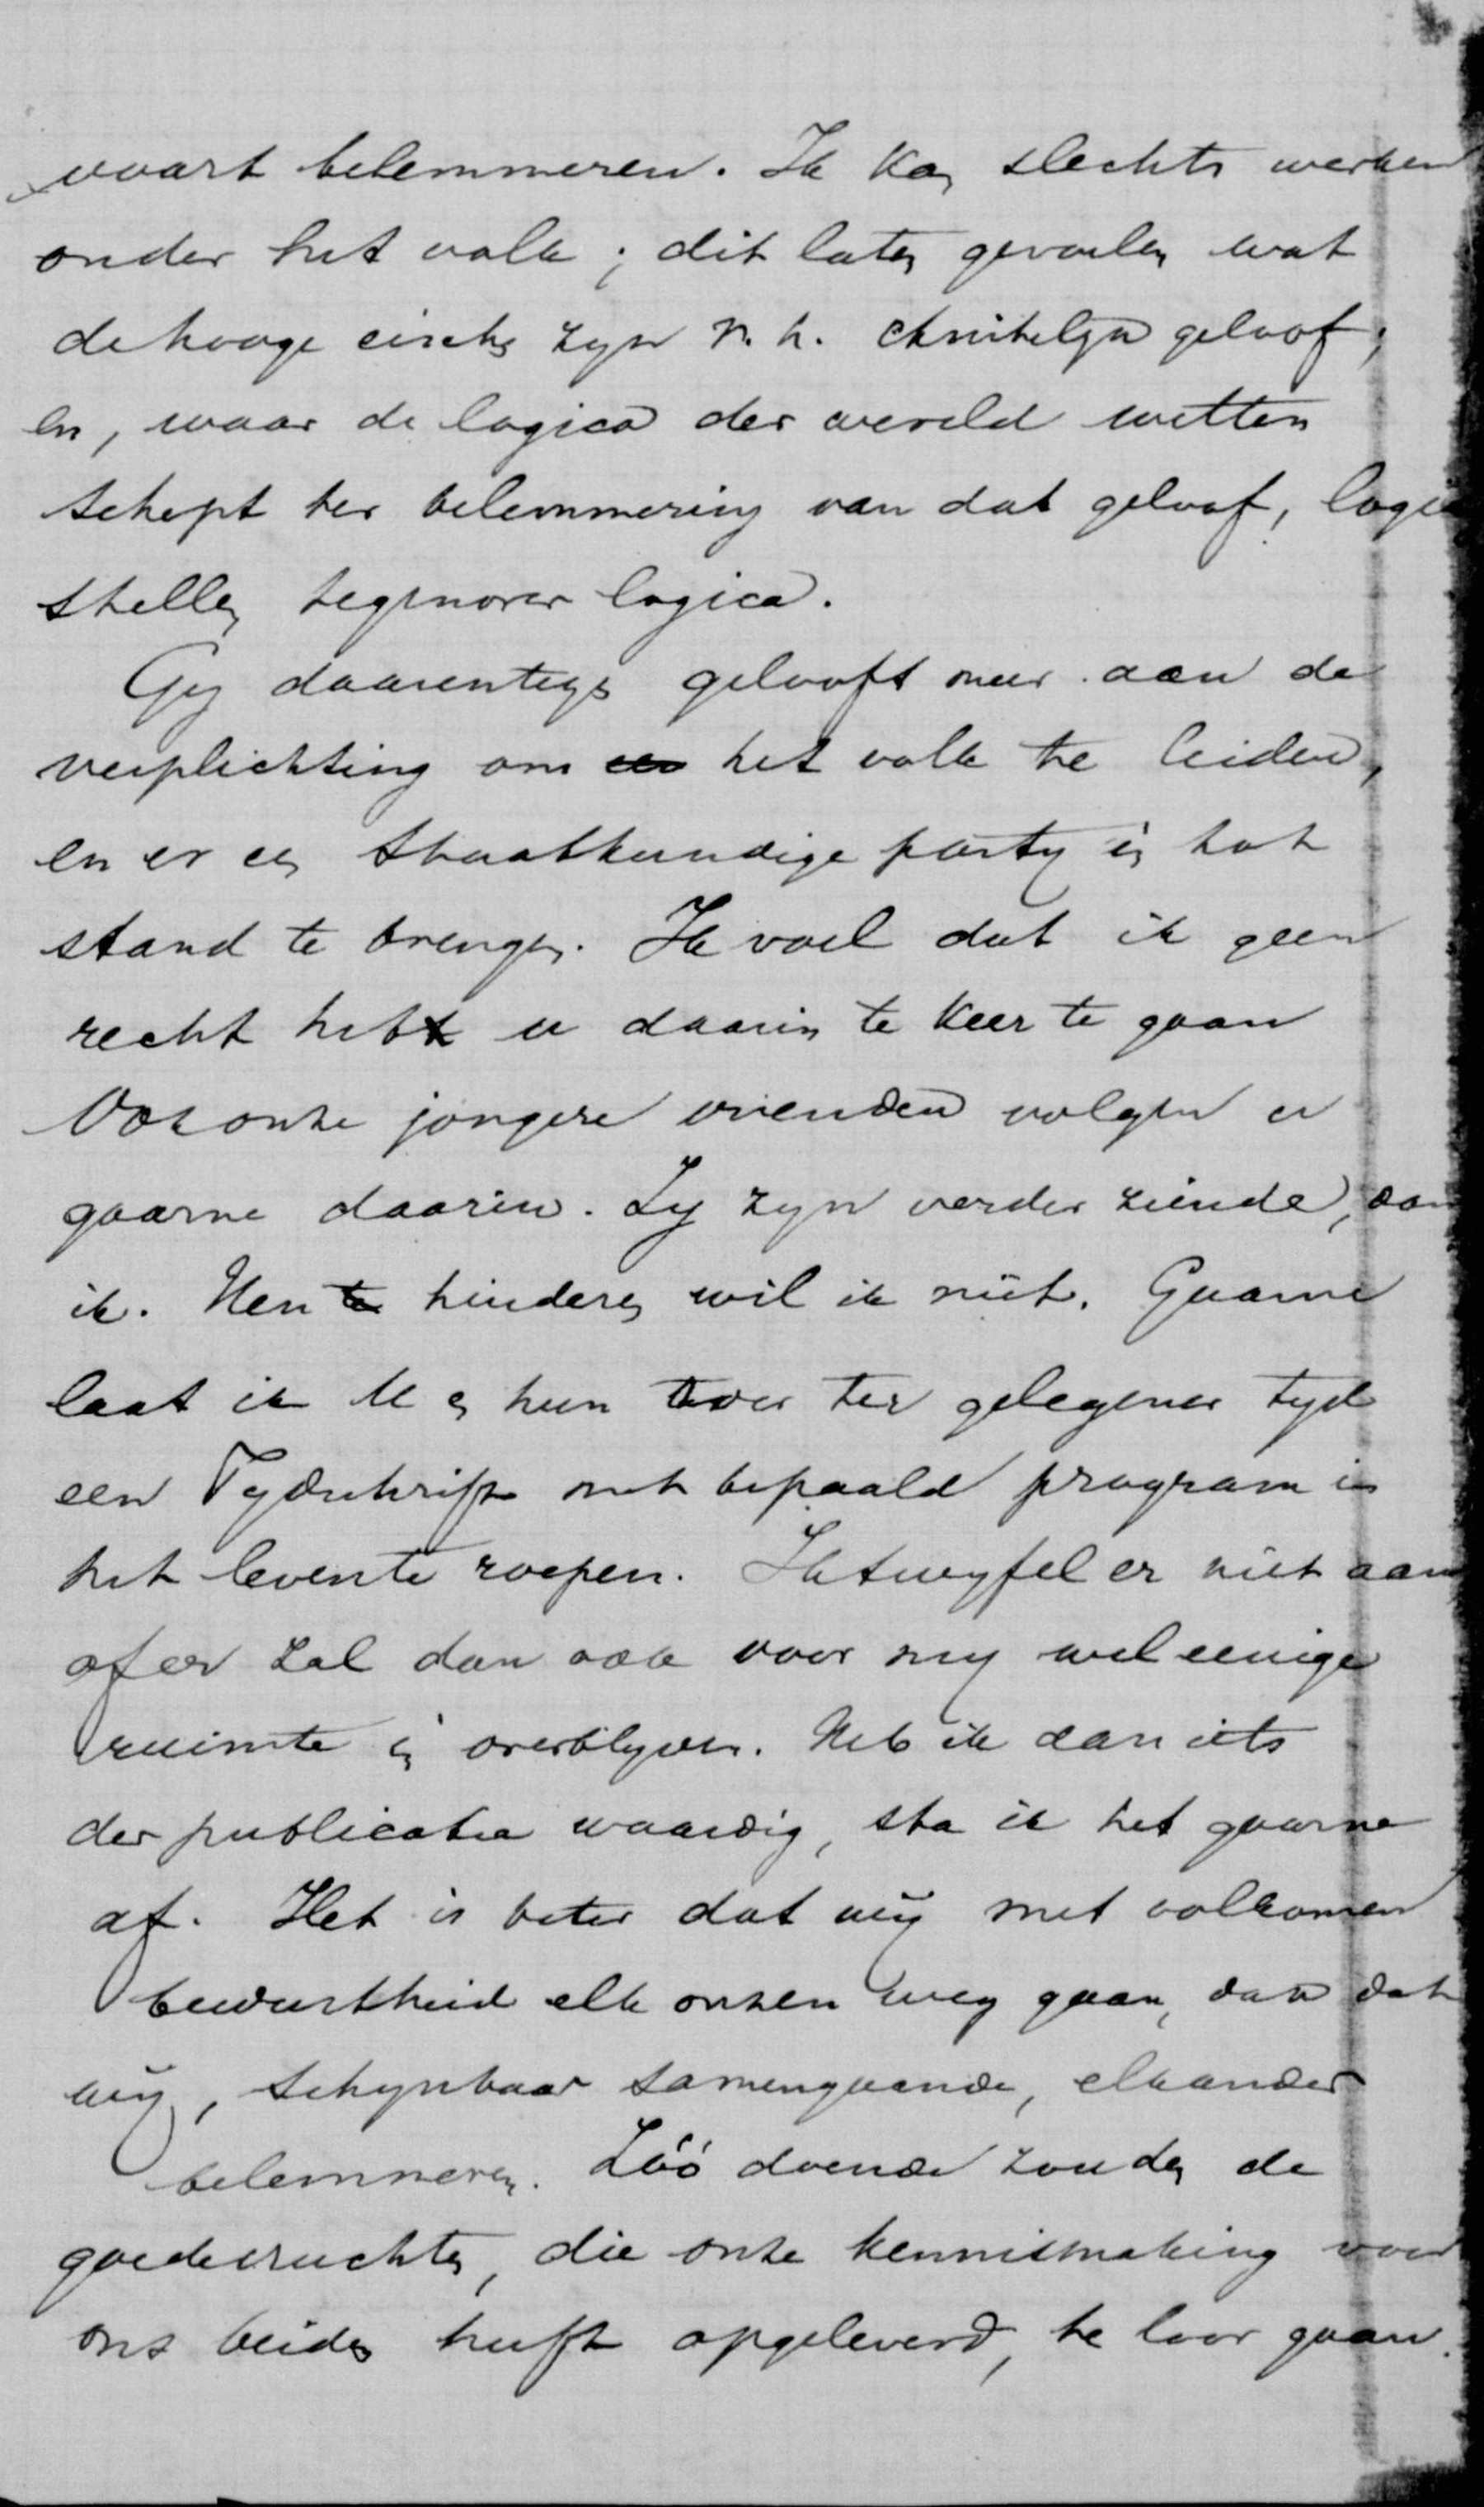 vaart belemmeren. Ik kan slechts werken
onder het volk; dit laten gevoelen wat
de hooge eischen zyn v. h. christelyk geloof;
en, waar de logica der wereld wetten
schept ter belemmering van dat geloof, logica
stellen tegenover logica.
Gy daarentegen gelooft meer aan de
verplichting om het volk te leiden,
en er een staatkundige party in tot
stand te brengen. Ik voel dat ik geen
recht heb u daarin te keer te gaan
Ook onze jongere vrienden volgen u
gaarne daarin. Zy zyn verder ziende, dan
ik. Hen te hinderen wil ik niet. Gaarne
laat ik U en hun over ter gelegener tyd
een Tydschrift met bepaald program in
het leven te roepen. Ik twyfel er niet aan
of er zal dan ook voor my wel eenige
ruimte in overblyven. Heb ik dan iets
der publicatie waardig, sta ik het gaarne
af. Het is beter dat wy met volkomen
bewustheid elk onzen weg gaan, dan dat
wy, schynbaar samengaande, elkander
belemmeren. Zóó doende zouden de
goede vruchten, die onze kennismaking voor
ons beiden heeft opgeleverd, te loor gaan.